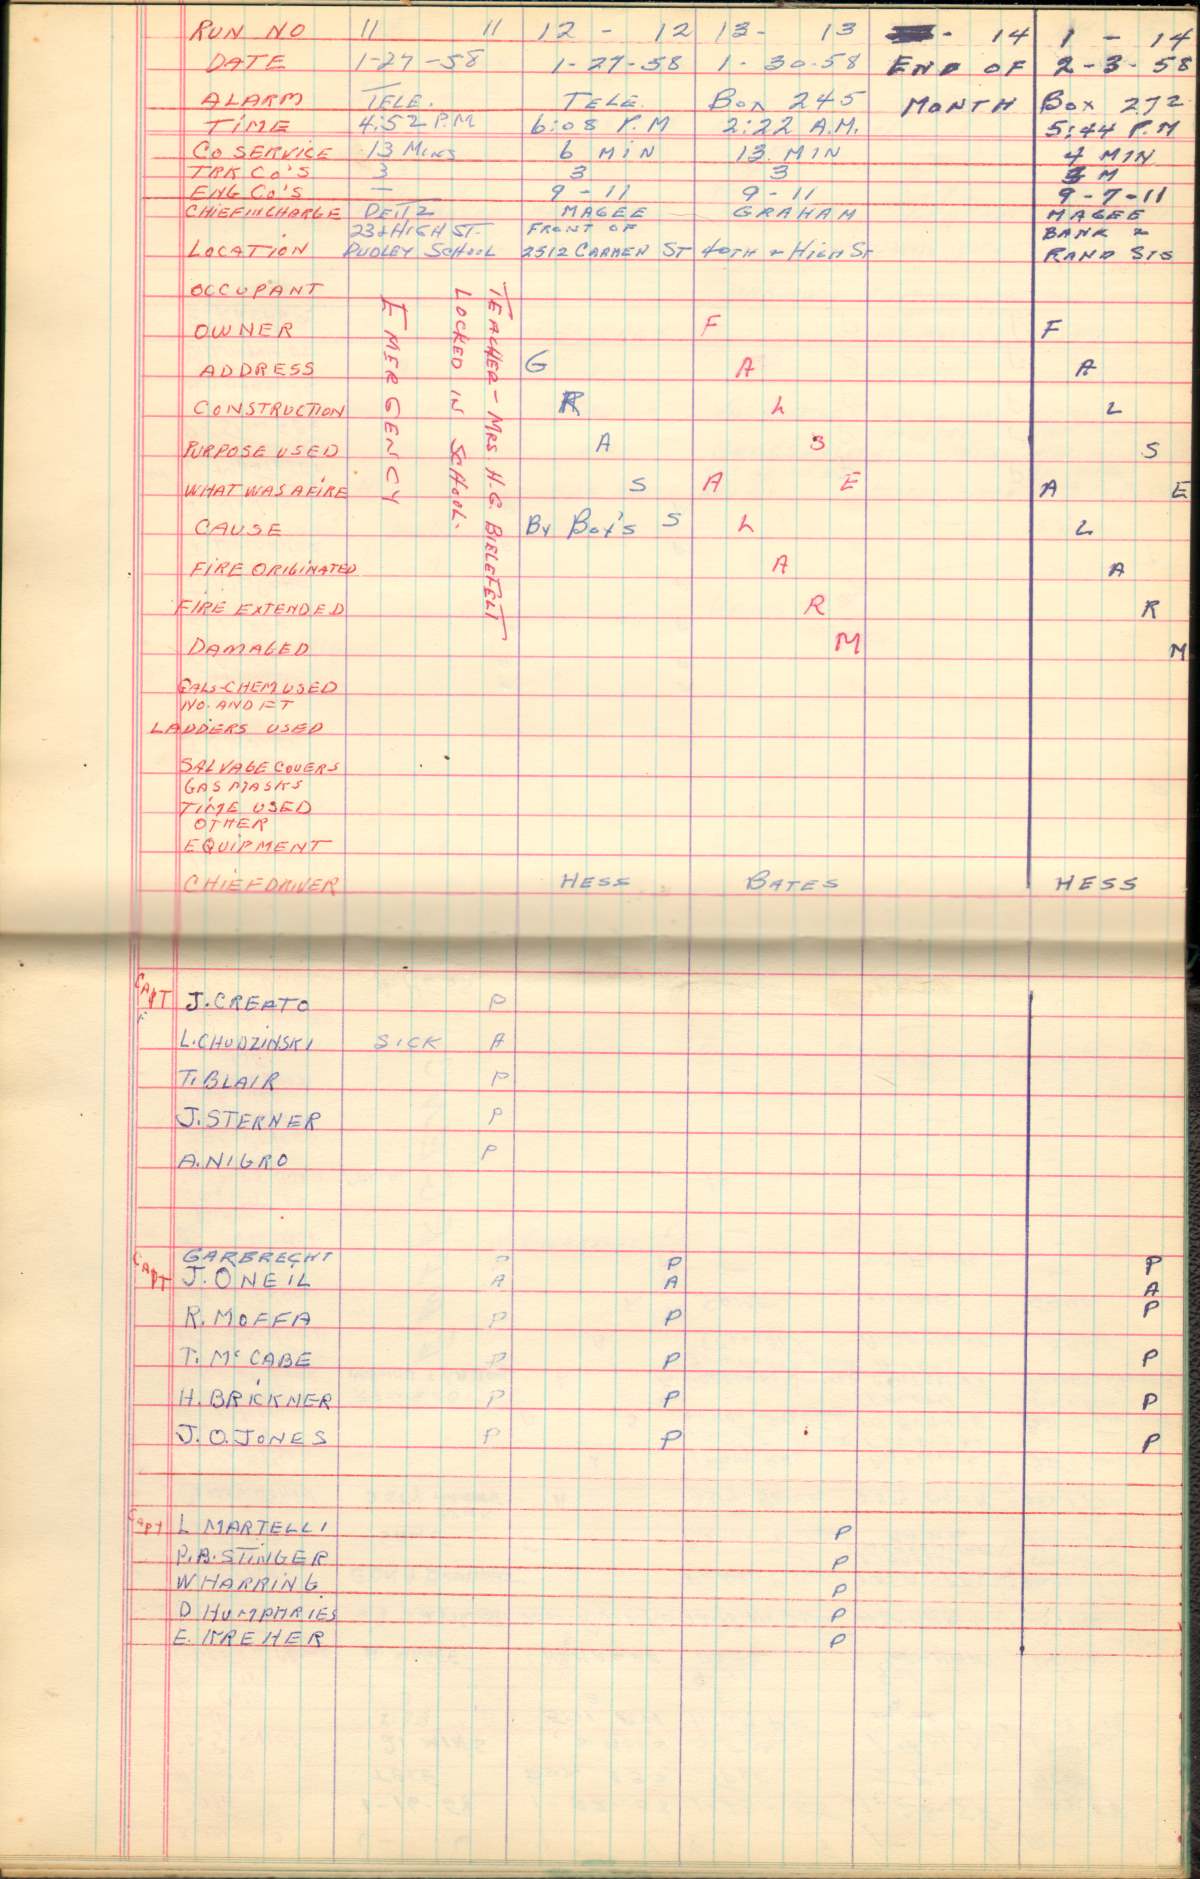 RUN NO 11 11 12 - 12 13- 13 - 14 1 - 14
DATE 1-27-58 1-27-58 1-30-58 END OF 2-3-58
ALARM TELE. TELE. BOX 245 MONTH BOX 272
TIME 4:52 P.M 6:08 P.M 2:22 A.M. 5:44 P.M
CO SERVICE 13 MINS 6 MIN 13 MIN 4 MIN
TRK CO'S 3 3 3 3
ENG CO'S — 9-11 9-11 9-7-11
CHIEF IN CHARGE DEITZ MAGEE GRAHAM MAGEE
23 & HIGH ST. FRONT OF BANK &
LOCATION DUDLEY SCHOOL 2512 CARMEN ST 40TH & HIGH ST RAND STS
OCCUPANT
EMERGENCY
LOCKED IN SCHOOL.
TEACHER - MRS H.G. BIELEFELT
OWNER F F
ADDRESS G A A
CONSTRUCTION R L L
PURPOSE USED A S S
WHAT WAS AFIRE S A E A E
CAUSE BY BOY'S S L L
FIRE ORIGINATED A A
FIRE EXTENDED R R
DAMAGED M M
GALS-CHEM USED
NO. AND FT
LADDERS USED
SALVAGE COVERS
GAS MASKS
TIME USED
OTHER
EQUIPMENT
CHIEF DRIVER HESS BATES HESS
CAPT J. CREATO P
L. CHUDZINSKI SICK A
T. BLAIR P
J. STERNER P
A. NIGRO P
GARBRECHT P P P
CAPT J. ONEIL A A A
R. MOFFA P P P
T. McCABE P P P
H. BRICKNER P P P
J. O. JONES P P P
CAPT L MARTELLI P
P. B. STINGER P
W HARRING P
D HUMPHRIES P
E. KREHER P